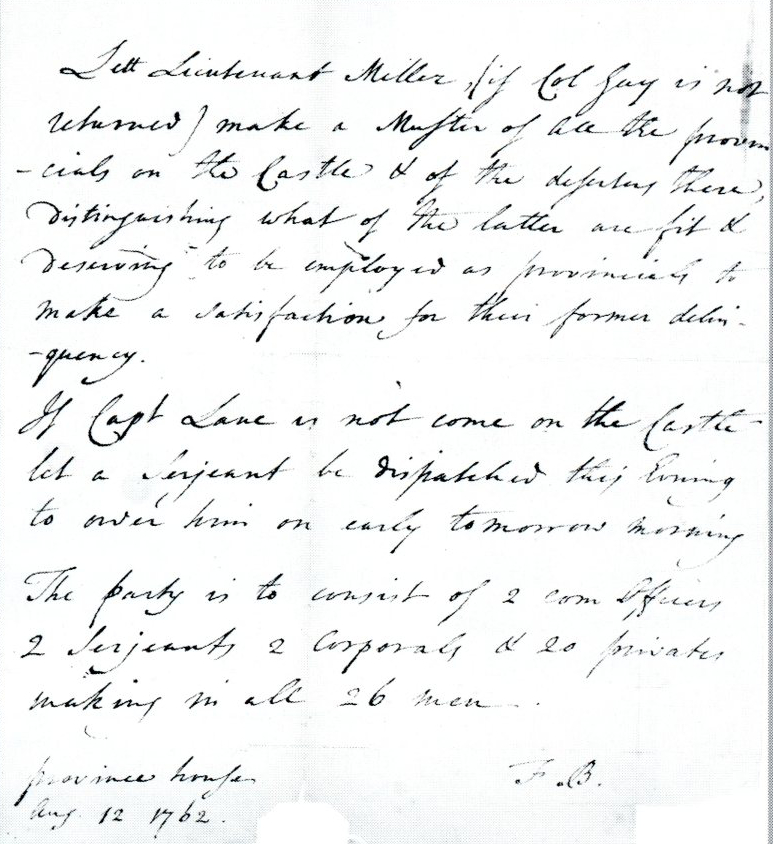 Lett Lieutenant Miller, (if Col Gay is not
returned) make a Muster of all the provin
-cials on the Castle & of the deserters there,
Distinguishing what of the latter are fit &
Deserving to be employed as provincials to
make a satisfaction for their former delin-
-quency.
If Capt Lane is not come on the Castle
let a Serjeant be dispatched this Evning
to order him on early tomorrow morning
The party is to consist of 2 com Officers
2 Serjeants 2 Corporals & 20 privates
making in all 26 men.
province house
Aug. 12 1762.
F.B.